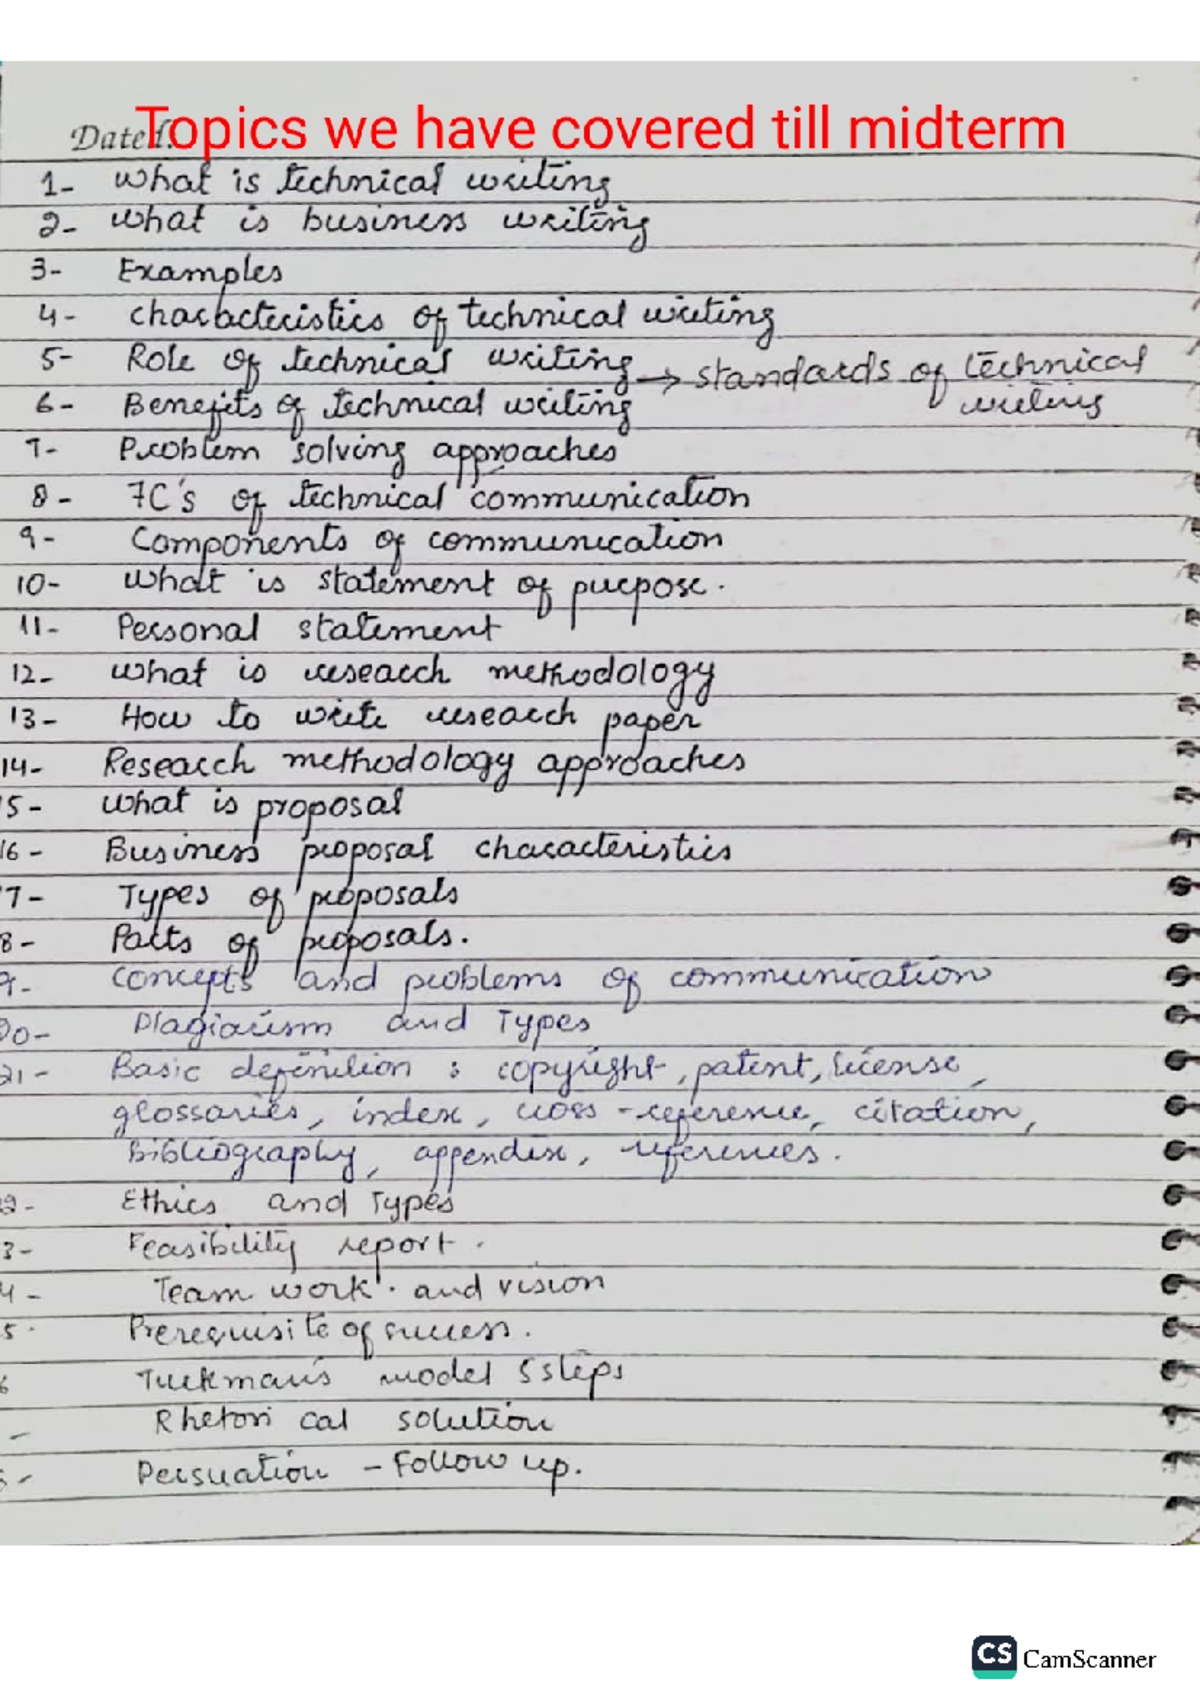 Dated:
Topics we have covered till midterm
1- what is technical writing
2- what is business writing
3- Examples
4- charbcteristics of technical writing
5- Role of technical writing → standards of technical writing
6- Benefits of technical writing
7- Problem solving approaches
8- 7C's of technical communication
9- Components of communication
10- what is statement of purpose.
11- Personal statement
12- what is research methodology
13- How to write research paper
14- Research methodology approaches
5- what is proposal
16- Business proposal characteristics
7- Types of proposals
8- Parts of proposals.
9- concepts and problems of communication
20- Plagiarism and Types
21- Basic definition : copyright, patent, license,
glossaries, index, cross-reference, citation,
Bibliography, appendix, references.
2- Ethics and Types
3- Feasibility report.
4- Team work. and vision
5. Prerequisite of success.
6 Tuckman's model 5 steps
- Rhetorical solution
- Persuation - Follow up.
CS CamScanner